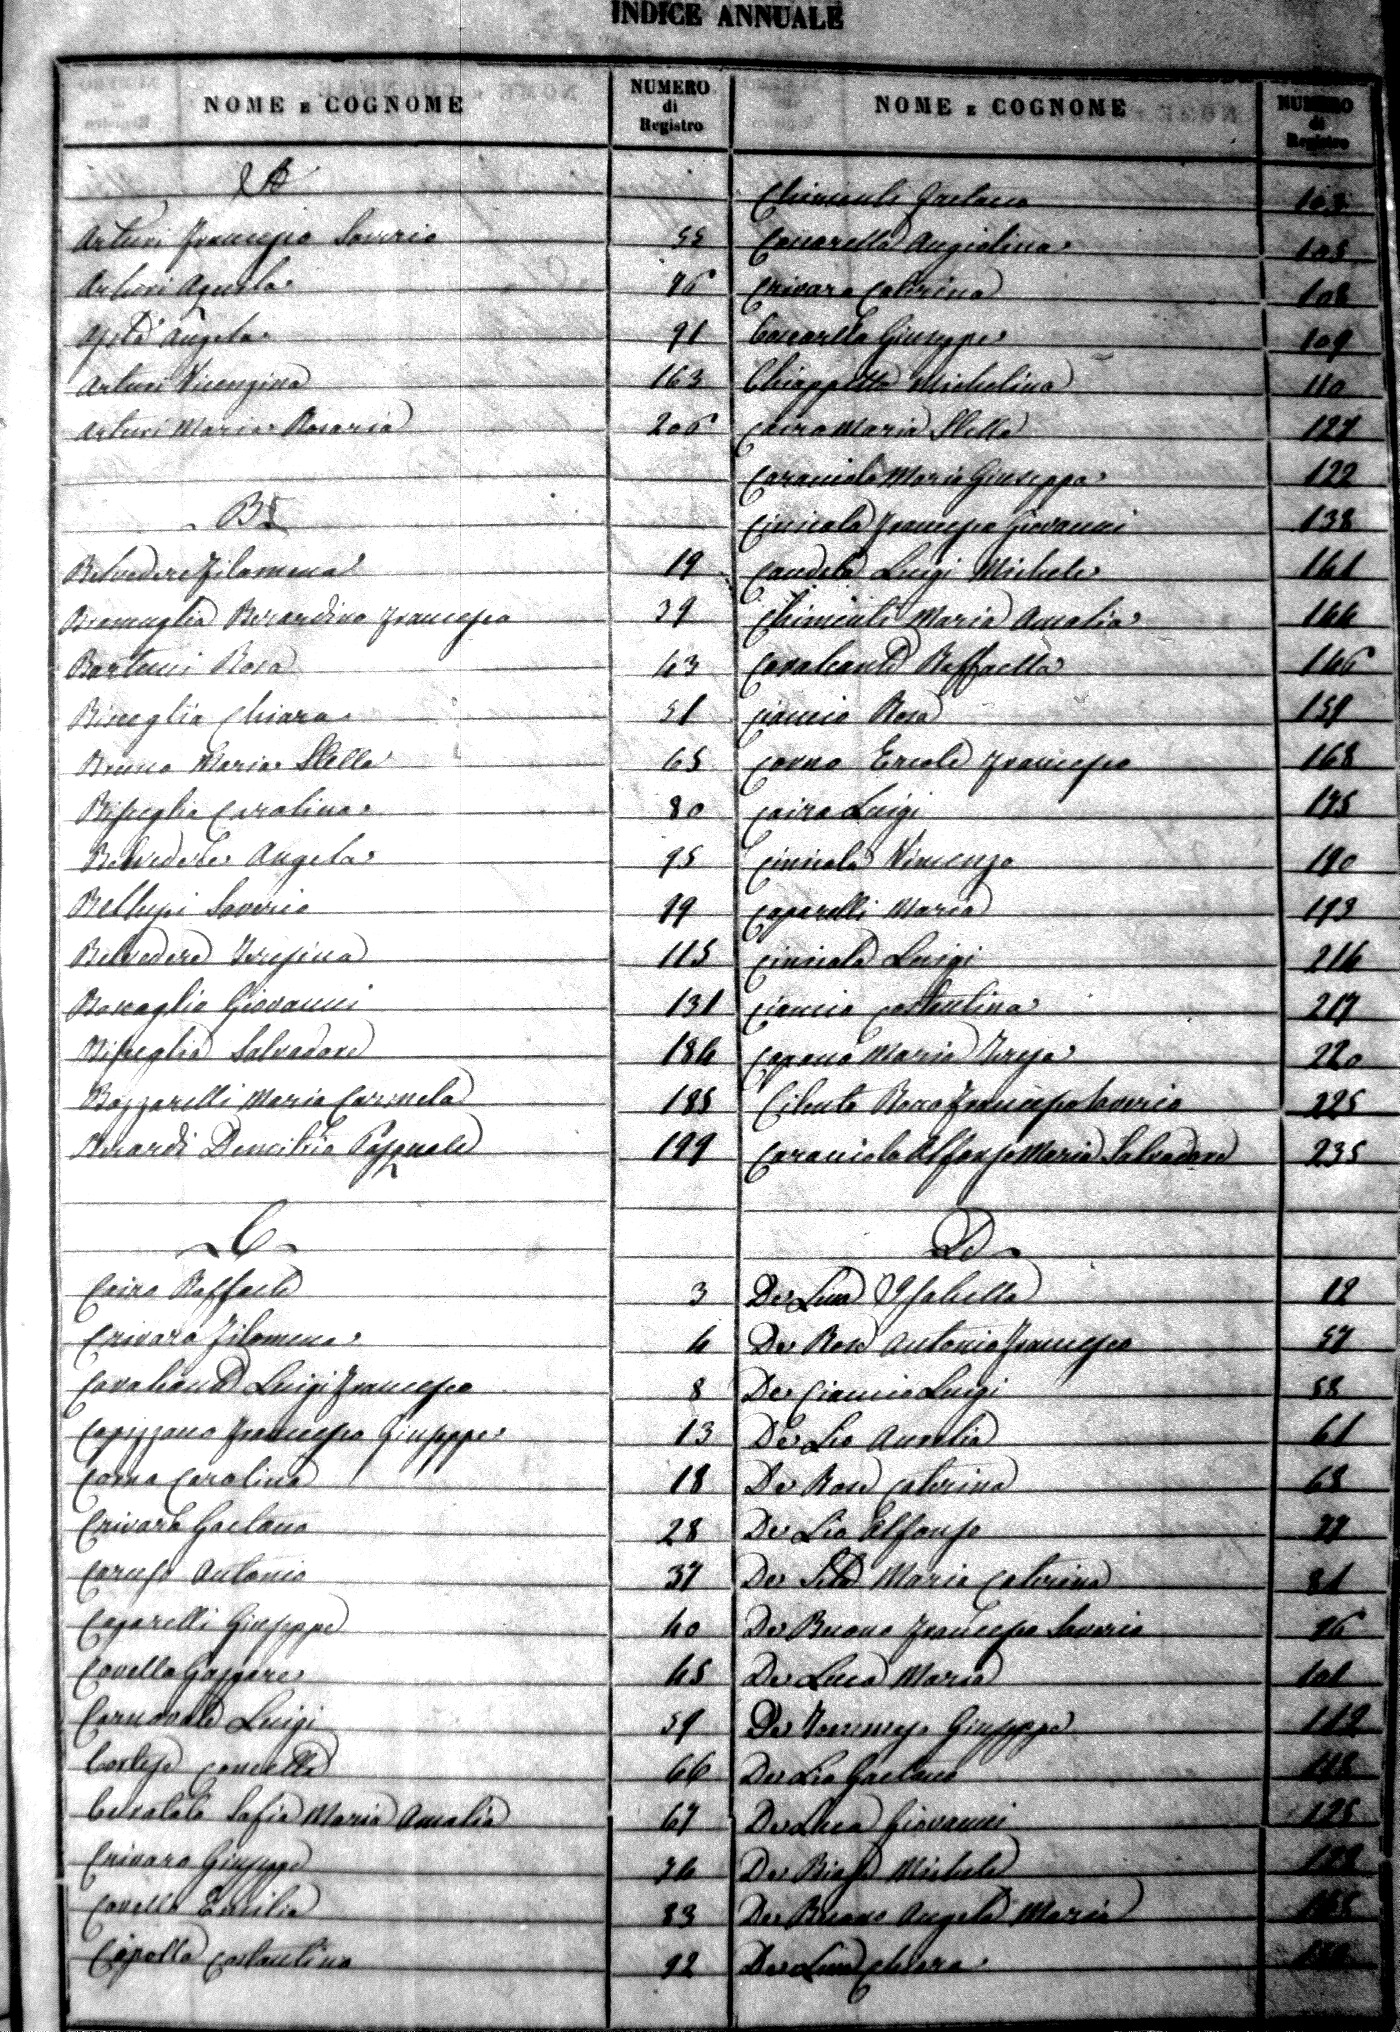 INDICE ANNUALE
NOME E COGNOME
NUMERO
di
Registro
A
Arturi Francesco Saverio 55
Arturi Agnola 76
Angela 91
Arturi Vicenzina 163
Arturi Maria Rosaria 206
B
Belvedere Filomena 19
Bramuglia Berardino Francesco 39
Bartucci Rosa 43
Bisceglia Chiara 51
Bruno Maria Stella 65
Bisceglia Carolina 80
Belvedere Angela 95
Bellusci Saverio 99
Belvedere Teresina 115
Bavaglio Giovanni 131
Bisceglia Salvadore 184
Bozzarelli Maria Carmela 185
Berardi Demetrio Pasquale 199
C
Caira Raffaele 3
Crivaro Filomena 4
Cavalcanti Luigi Francesco 8
Capizzano Francesco Giuseppe 13
Corno Carolina 18
Crivaro Gaetano 28
Caruso Antonio 37
Caparelli Giuseppe 40
Covello Gaspare 45
Carnovale Luigi 59
Cortese Concetta 66
Sofia Maria Amalia 67
Crivaro Giuseppe 74
Covello Emilia 83
Cipolla Costantino 92
NOME E COGNOME
NUMERO
di
Registro
Chimenti Gaetano 103
Cascarella Angiolina 105
Crivaro Caterina 108
Cascarella Giuseppe 109
Chiappetta Michelina 110
Caira Maria Stella 121
Caracciolo Maria Giuseppa 122
Cinicola Francesco Giovanni 138
Candela Luigi Michele 141
Chimenti Maria Amalia 144
Cavalcanti Raffaella 146
Ciancio Rosa 159
Corno Ercole Francesco 168
Caira Luigi 175
Cinicola Vincenzo 190
Caparelli Maria 193
Cinicola Luigi 214
Ciancio Costantina 217
Capano Maria Teresa 220
Cilento Rocco Francesco Saverio 225
Caracciolo Alfonso Maria Salvadore 235
D
De Luca Isabella 12
De Rose Antonio Francesco 57
De Ciancio Luigi 58
De Lio Aurelia 61
De Rose Caterina 68
De Lio Alfonso 77
De Seta Maria Caterina 81
De Buono Francesco Saverio 96
De Luca Maria 101
De Giuseppe 112
De Lio Gaetano 118
De Luca Giovanni 125
De Biase Michele
De Buono Angela Maria
De Luca Chiara